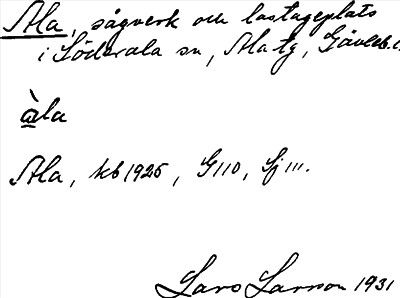 Ala, sågverk och lastageplats
i Söderala sn, Ala tg, Gävleb. l.
àla
Ala, kb 1925, G110, Sj 111.
Lars Larsson 1931